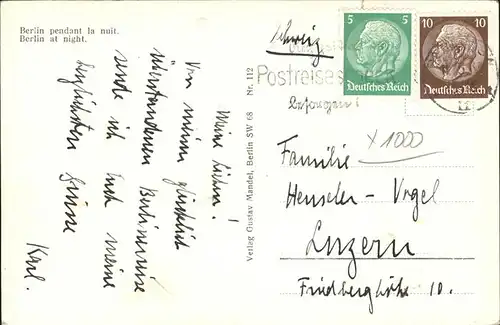 Berlin pendant la nuit.
Berlin at night.
Meine Lieben!
Von meiner glücklich
überstandenen Berlinreise
sende ich Euch meine
herzlichsten Grüsse
Karl.
Verlag Gustav Mandel, Berlin SW 68 Nr. 112
Schweiz
5 5
Deutsches Reich
10 10
Deutsches Reich
Postreise
besorgen!
x 1000
Familie
Henseler-Vogel
Luzern
Friedberghöhe 10.